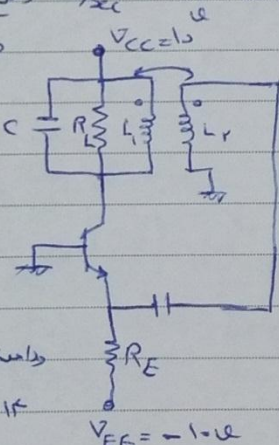 V_CC = 10 v
C
R_L
L_1
L_2
R_E
V_EE = -10 v